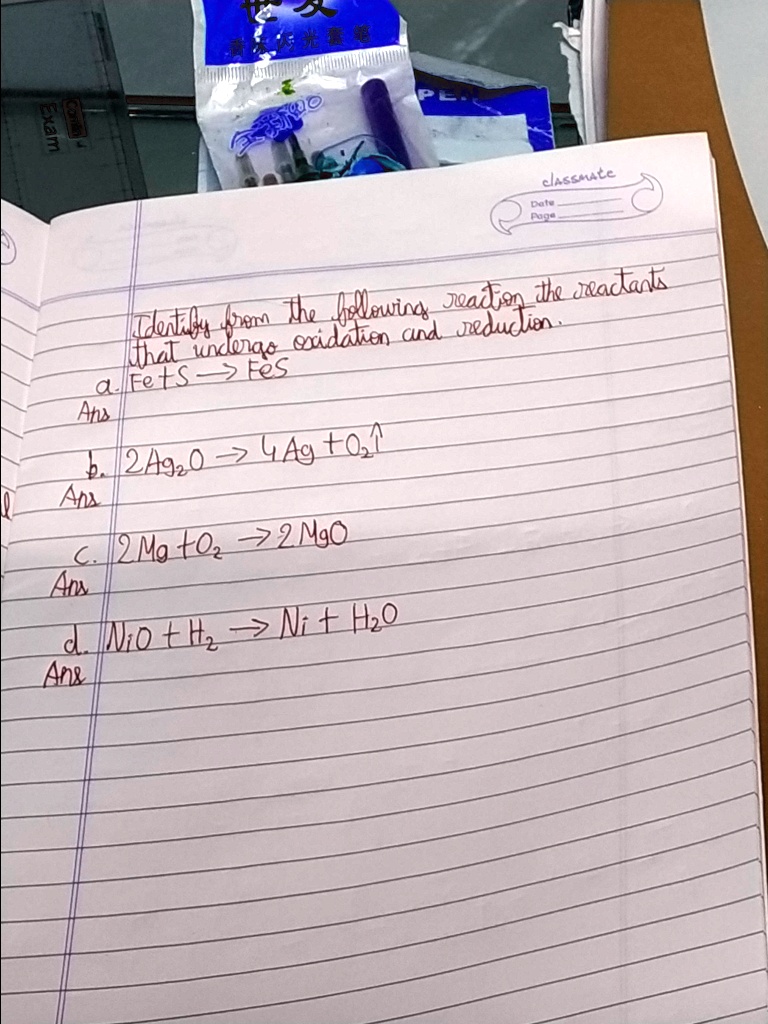 世爱
PEN
Exam
classmate
Date
Page
Identify from the following reaction the reactants
that undergo oxidation and reduction.
a. Fe+S → FeS
Ans
b. 2Ag₂O → 4Ag + O₂↑
Ans
c. 2Mg + O₂ → 2MgO
Ans
d. NiO + H₂ → Ni + H₂O
Ans